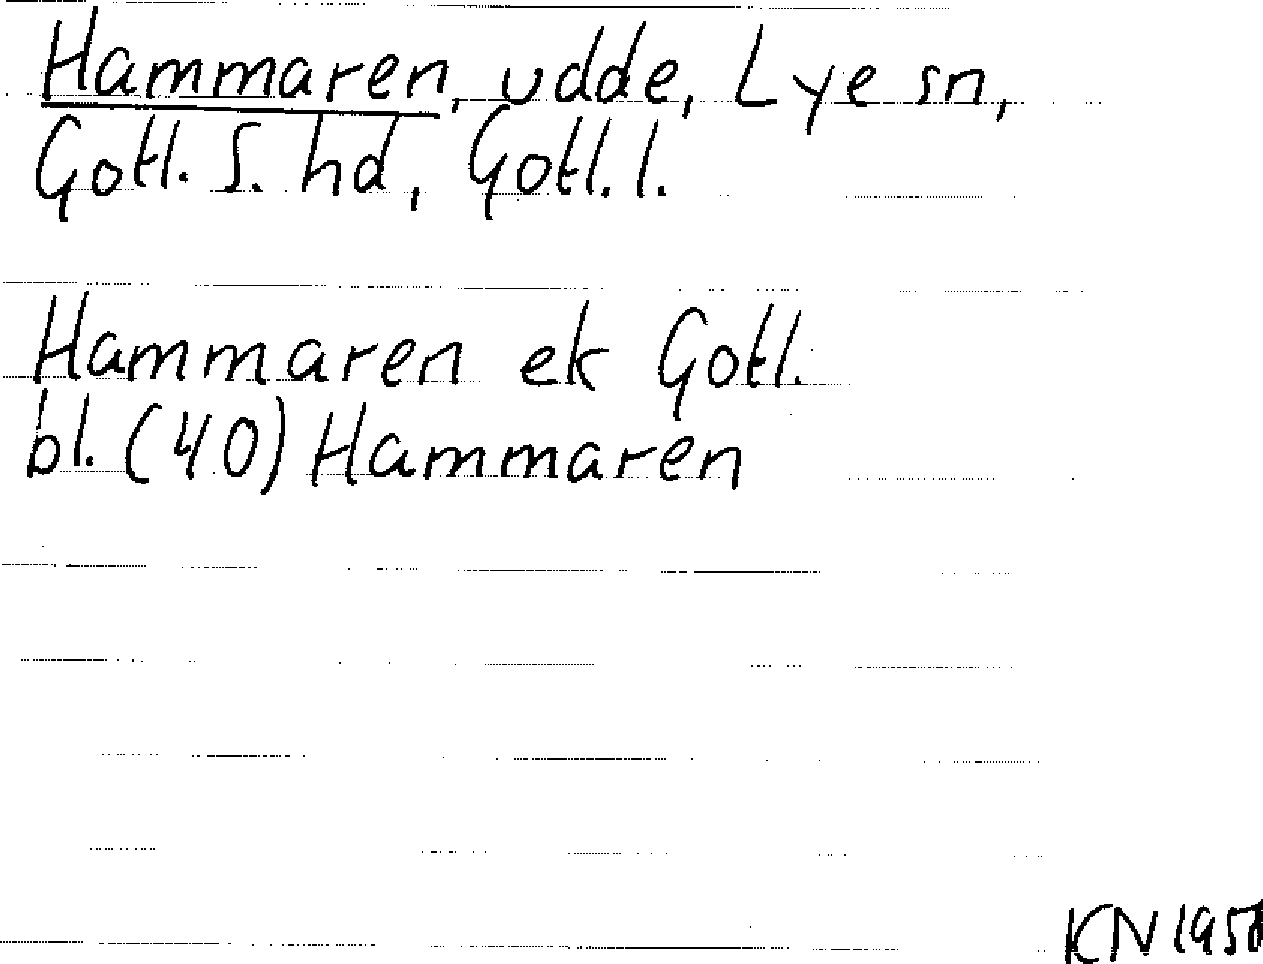 Hammaren, udde, Lye sn,
Gotl. S. hd, Gotl. l.
Hammaren ek Gotl.
bl. (40) Hammaren
KN